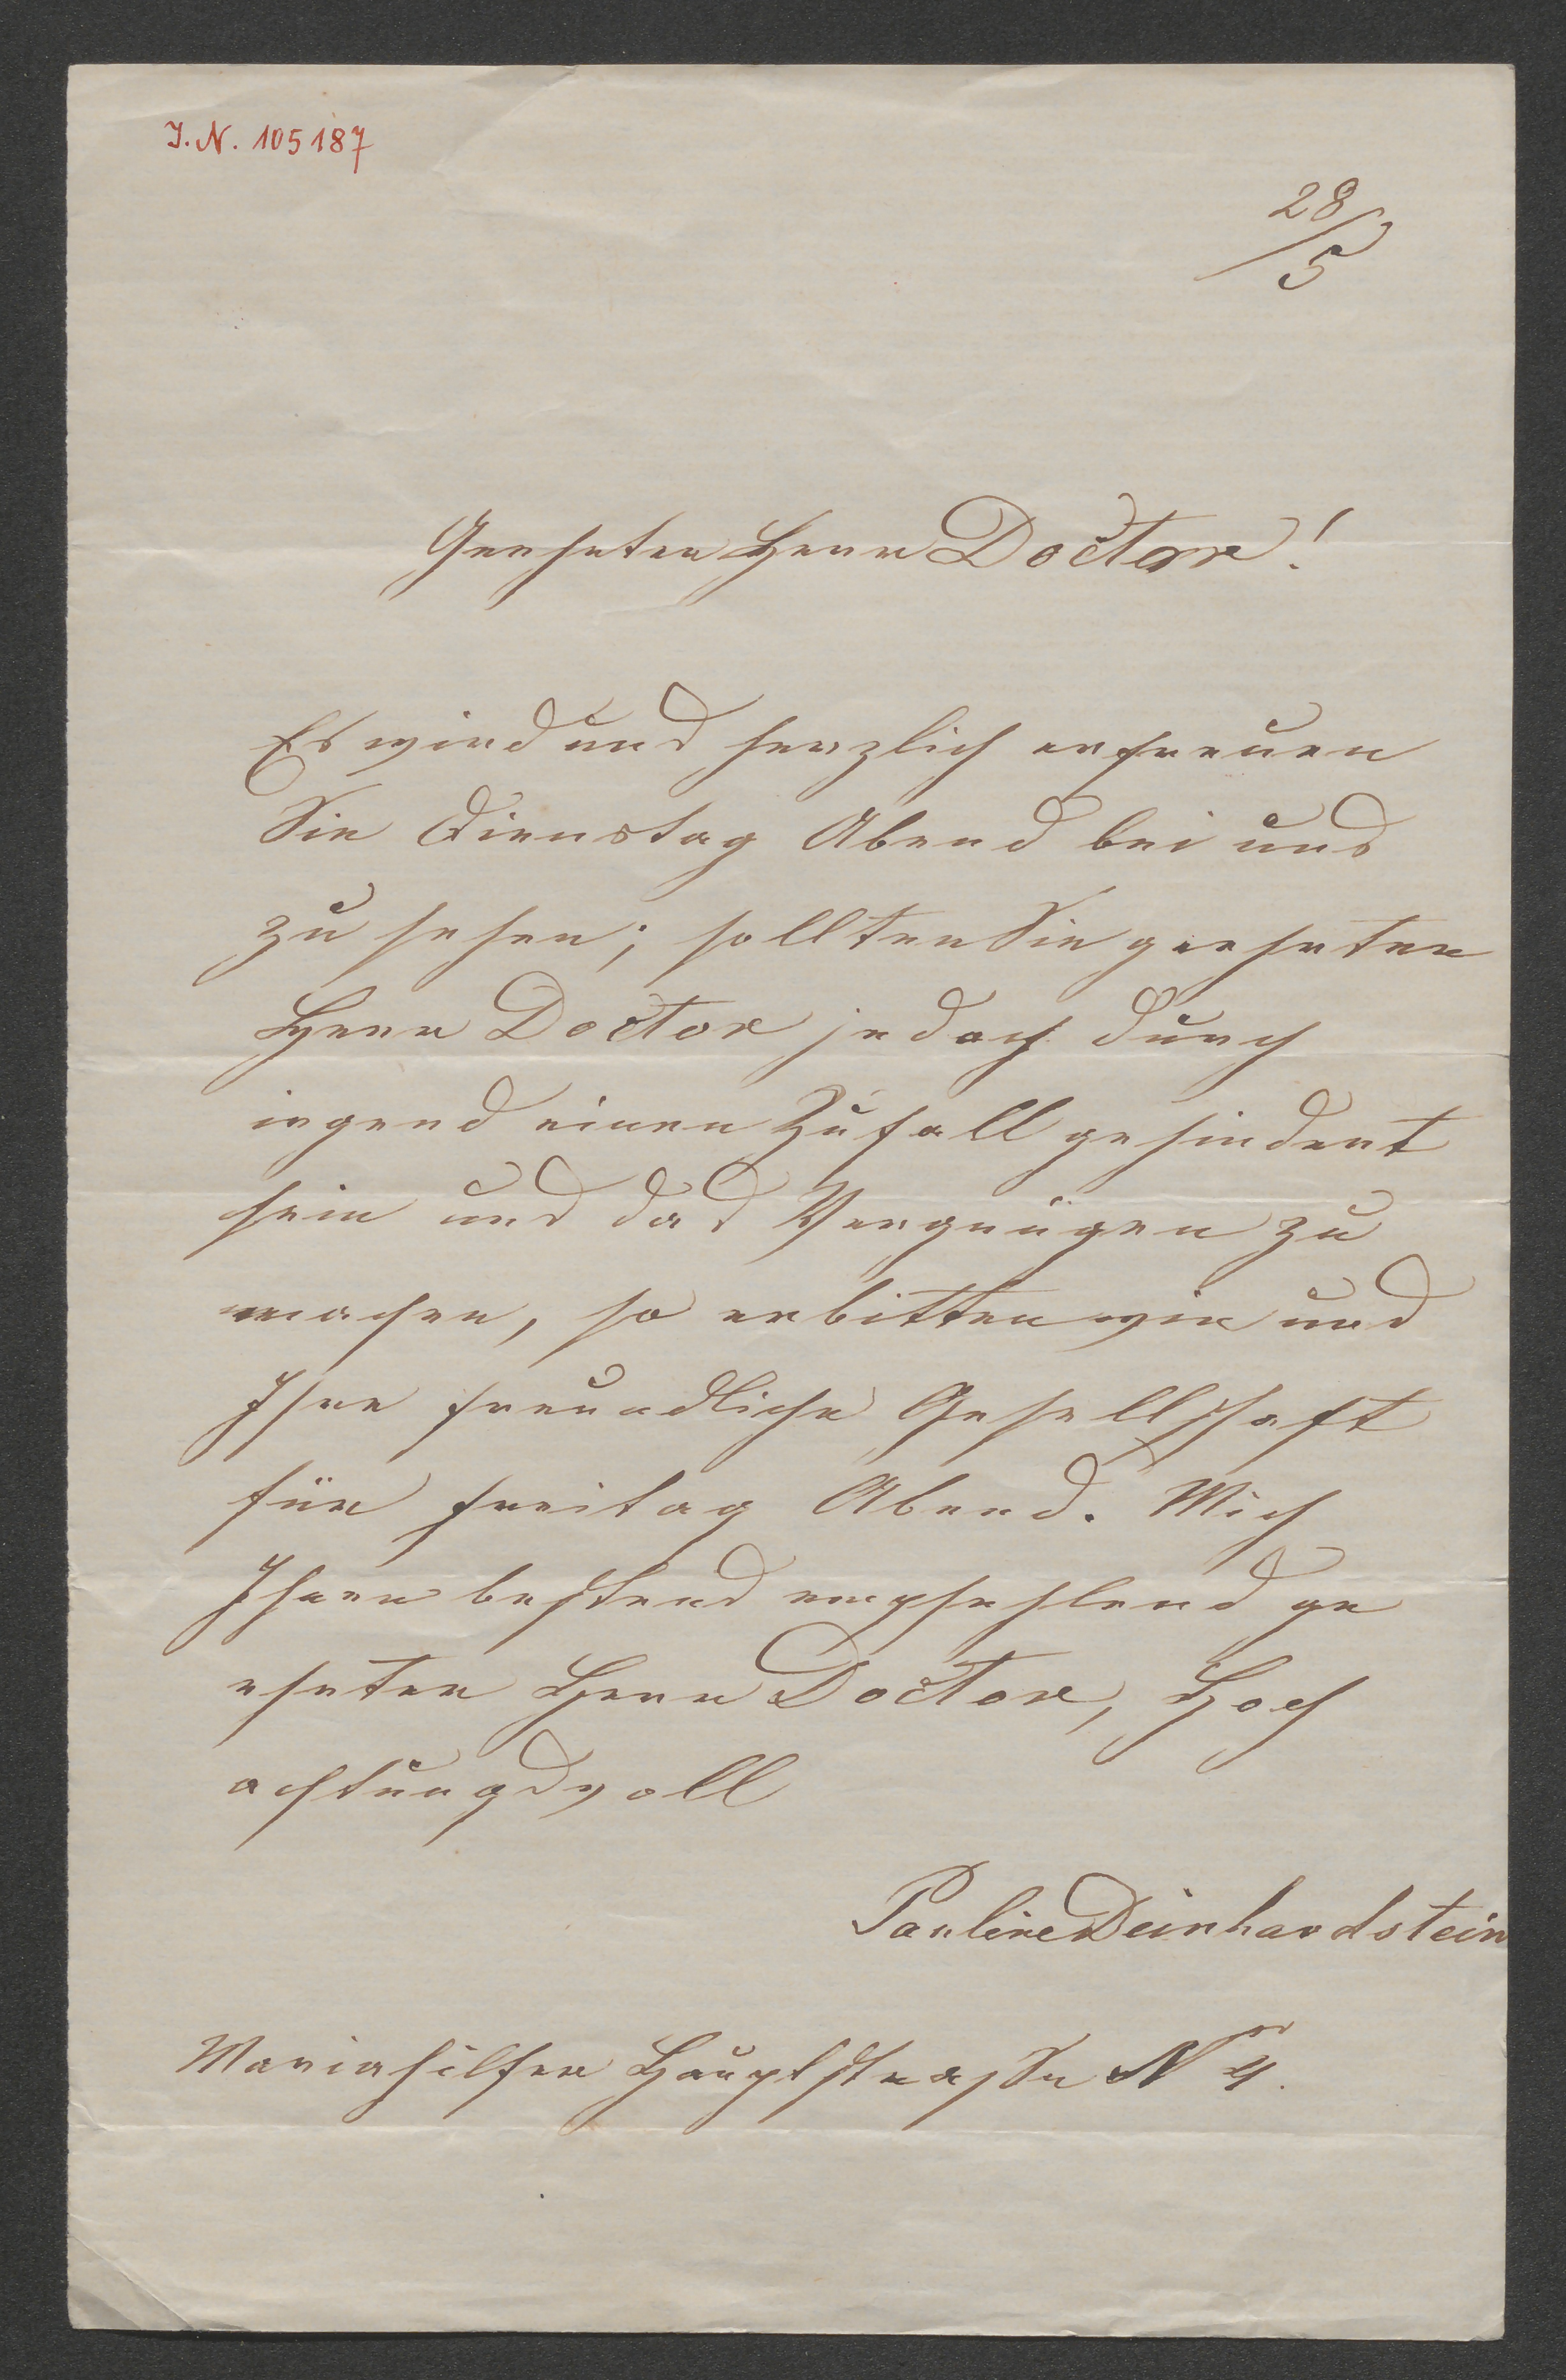 I. N. 105187
28/5
Geehrter Herr Doctor!
Es wird uns herzlich erfreuen
Sie Dienstag Abend bei uns
zu sehen; sollten Sie geehrter
Herr Doctor jedoch durch
irgend einen Zufall gehindert
sein uns das Vergnügen zu
machen, so erbitten wir uns
Ihre freundliche Gesellschaft
für Freitag Abend. Mich
Ihnen bestens empfehlend ge
ehrter Herr Doctor, Hoch
achtungsvoll
Pauline Deinhardstein
Mariahilfer Hauptstrasse Nr 4.